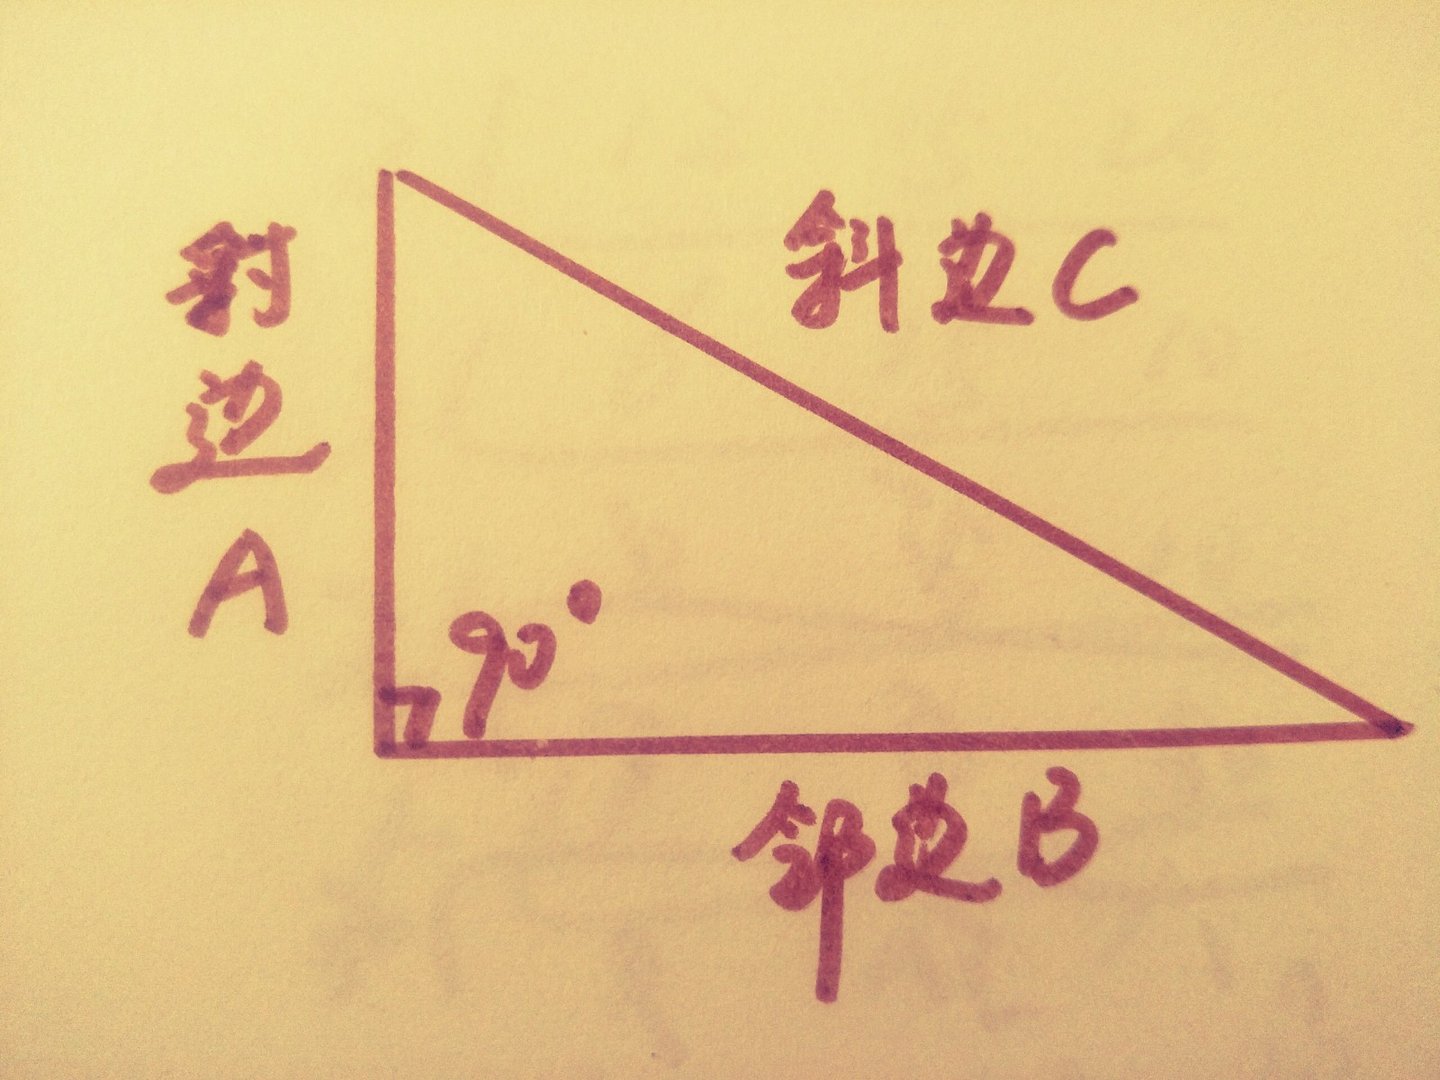 射边A
斜边C
90°
邻边B